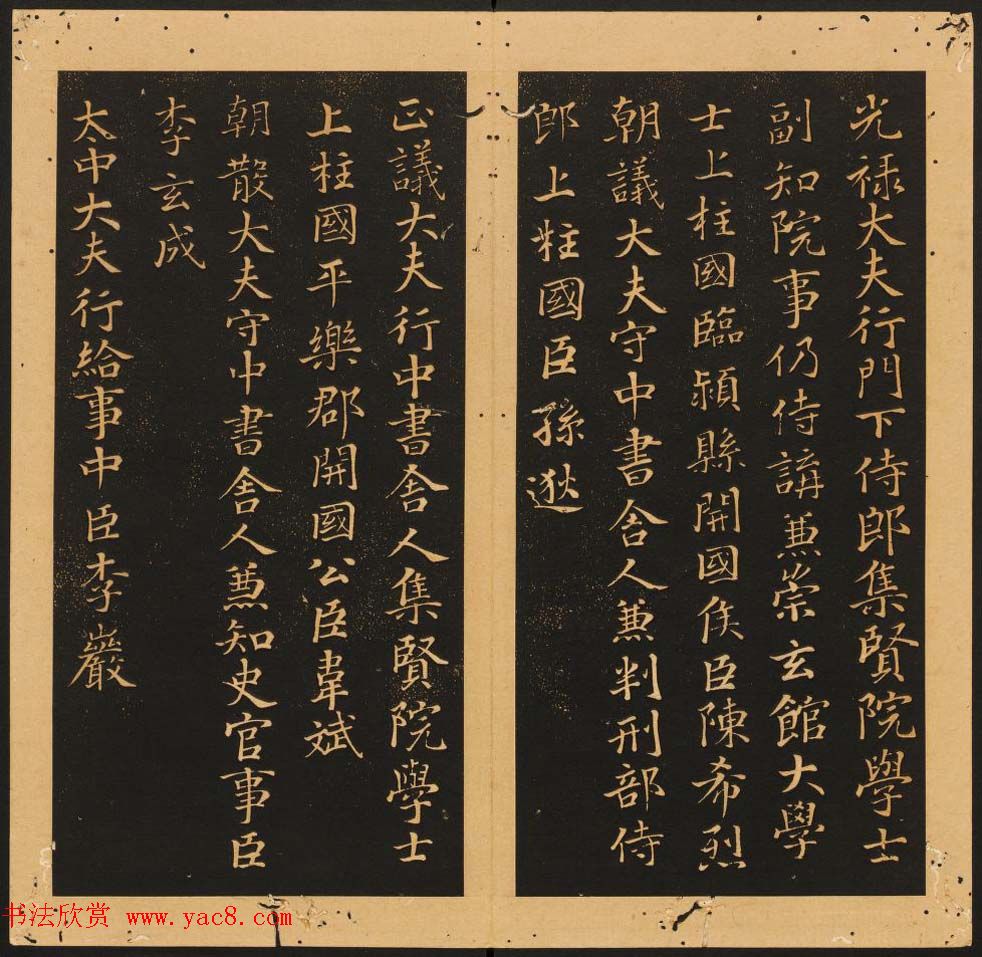 光禄大夫行門下侍郎集賢院學士
副知院事仍侍講兼崇玄館大學
士上柱國臨潁縣開國侯臣陳希烈
朝議大夫守中書舍人兼判刑部侍
郎上柱國臣孫逖
正議大夫行中書舍人集賢院學士
上柱國平樂郡開國公臣韋斌
朝散大夫守中書舍人兼知史官事臣
李玄成
太中大夫行給事中臣李巖
书法欣赏 www.yac8.com